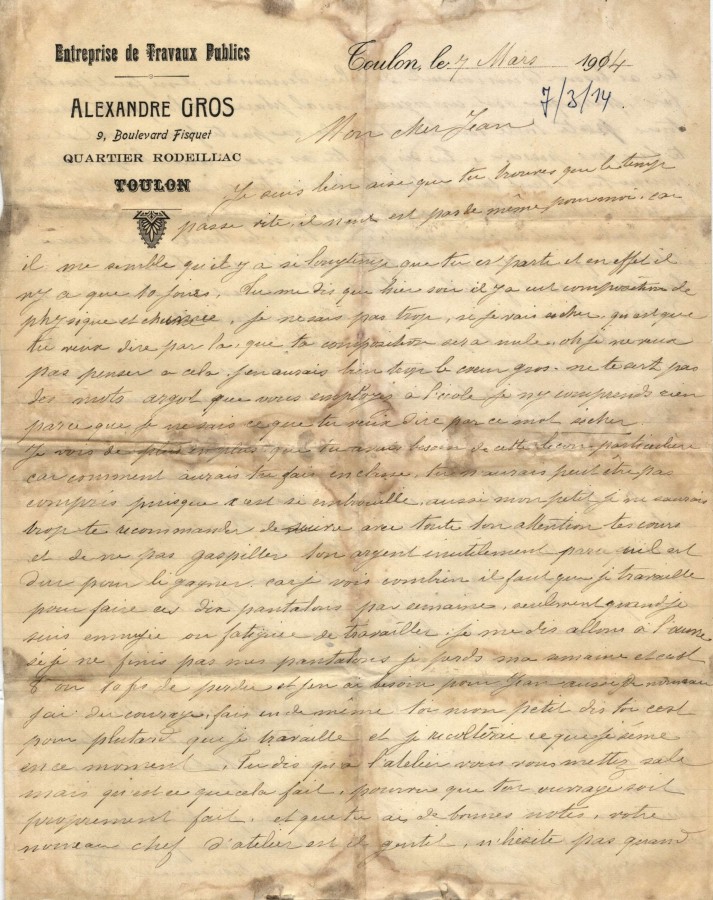 Entreprise de Travaux Publics
ALEXANDRE GROS
9, Boulevard Fisquet
QUARTIER RODEILLAC
TOULON
Toulon, le 7 Mars 1914
7/3/14.
Mon cher Jean
Je suis bien aise que tu trouves que le temp
passe vite, il n'en est pas de même pour moi, car
il me semble qu'il y a si longtemps que tu est partit et en effet il
n'y a que 10 jours. Tu me dis que hier soir il y a eut composition de
physique et chimie, je ne sais pas trop, si je vais sécher, qu'est que
tu veux dire par la, que ta composition sera nule, oh je ne veux
pas penser a cela, j'en aurais bien trop le cœur gros, ne te sert pas
des mots argot que vous employés à l'école je n'y comprends rien
parce que je ne sais ce que tu veux dire par ce mot sécher.
Je vois de plus en plus que tu avais besoin de cette leçon particulière
car comment aurais tu fais en classe, tu n'aurais peut être pas
compris puisque c'est si embrouillé, aussi mon petit je ne saurais
trop te recommander de suivre avec toute ton attention tes cours
et de ne pas gaspiller ton argent inutilement parce qu'il est
dur pour le gagner, car je vois combien il faut que je travaille
pour faire ces dix pantalons par semaines, seulement quand je
suis ennuyée ou fatiguée de travailler, je me dis allons à l'œuvre
si je ne finis pas mes pantalons je perds ma semaine et c'est
8 ou 10 frs de perdu et j'en ai besoin pour Jean aussi de nouveau
j'ai du courage, fais en de même toi mon petit dis toi c'est
pour plutard que je travaille et je récolterai ce que je sème
en ce moment. Tu dis qu'a l'atelier vous vous mettez sale
mais qu'est ce que cela fait, pourvu que ton ouvrage soit
proprement fait, et que tu ai de bonnes notes, votre
nouveau chef d'atelier est il gentil, n'hésite pas quand